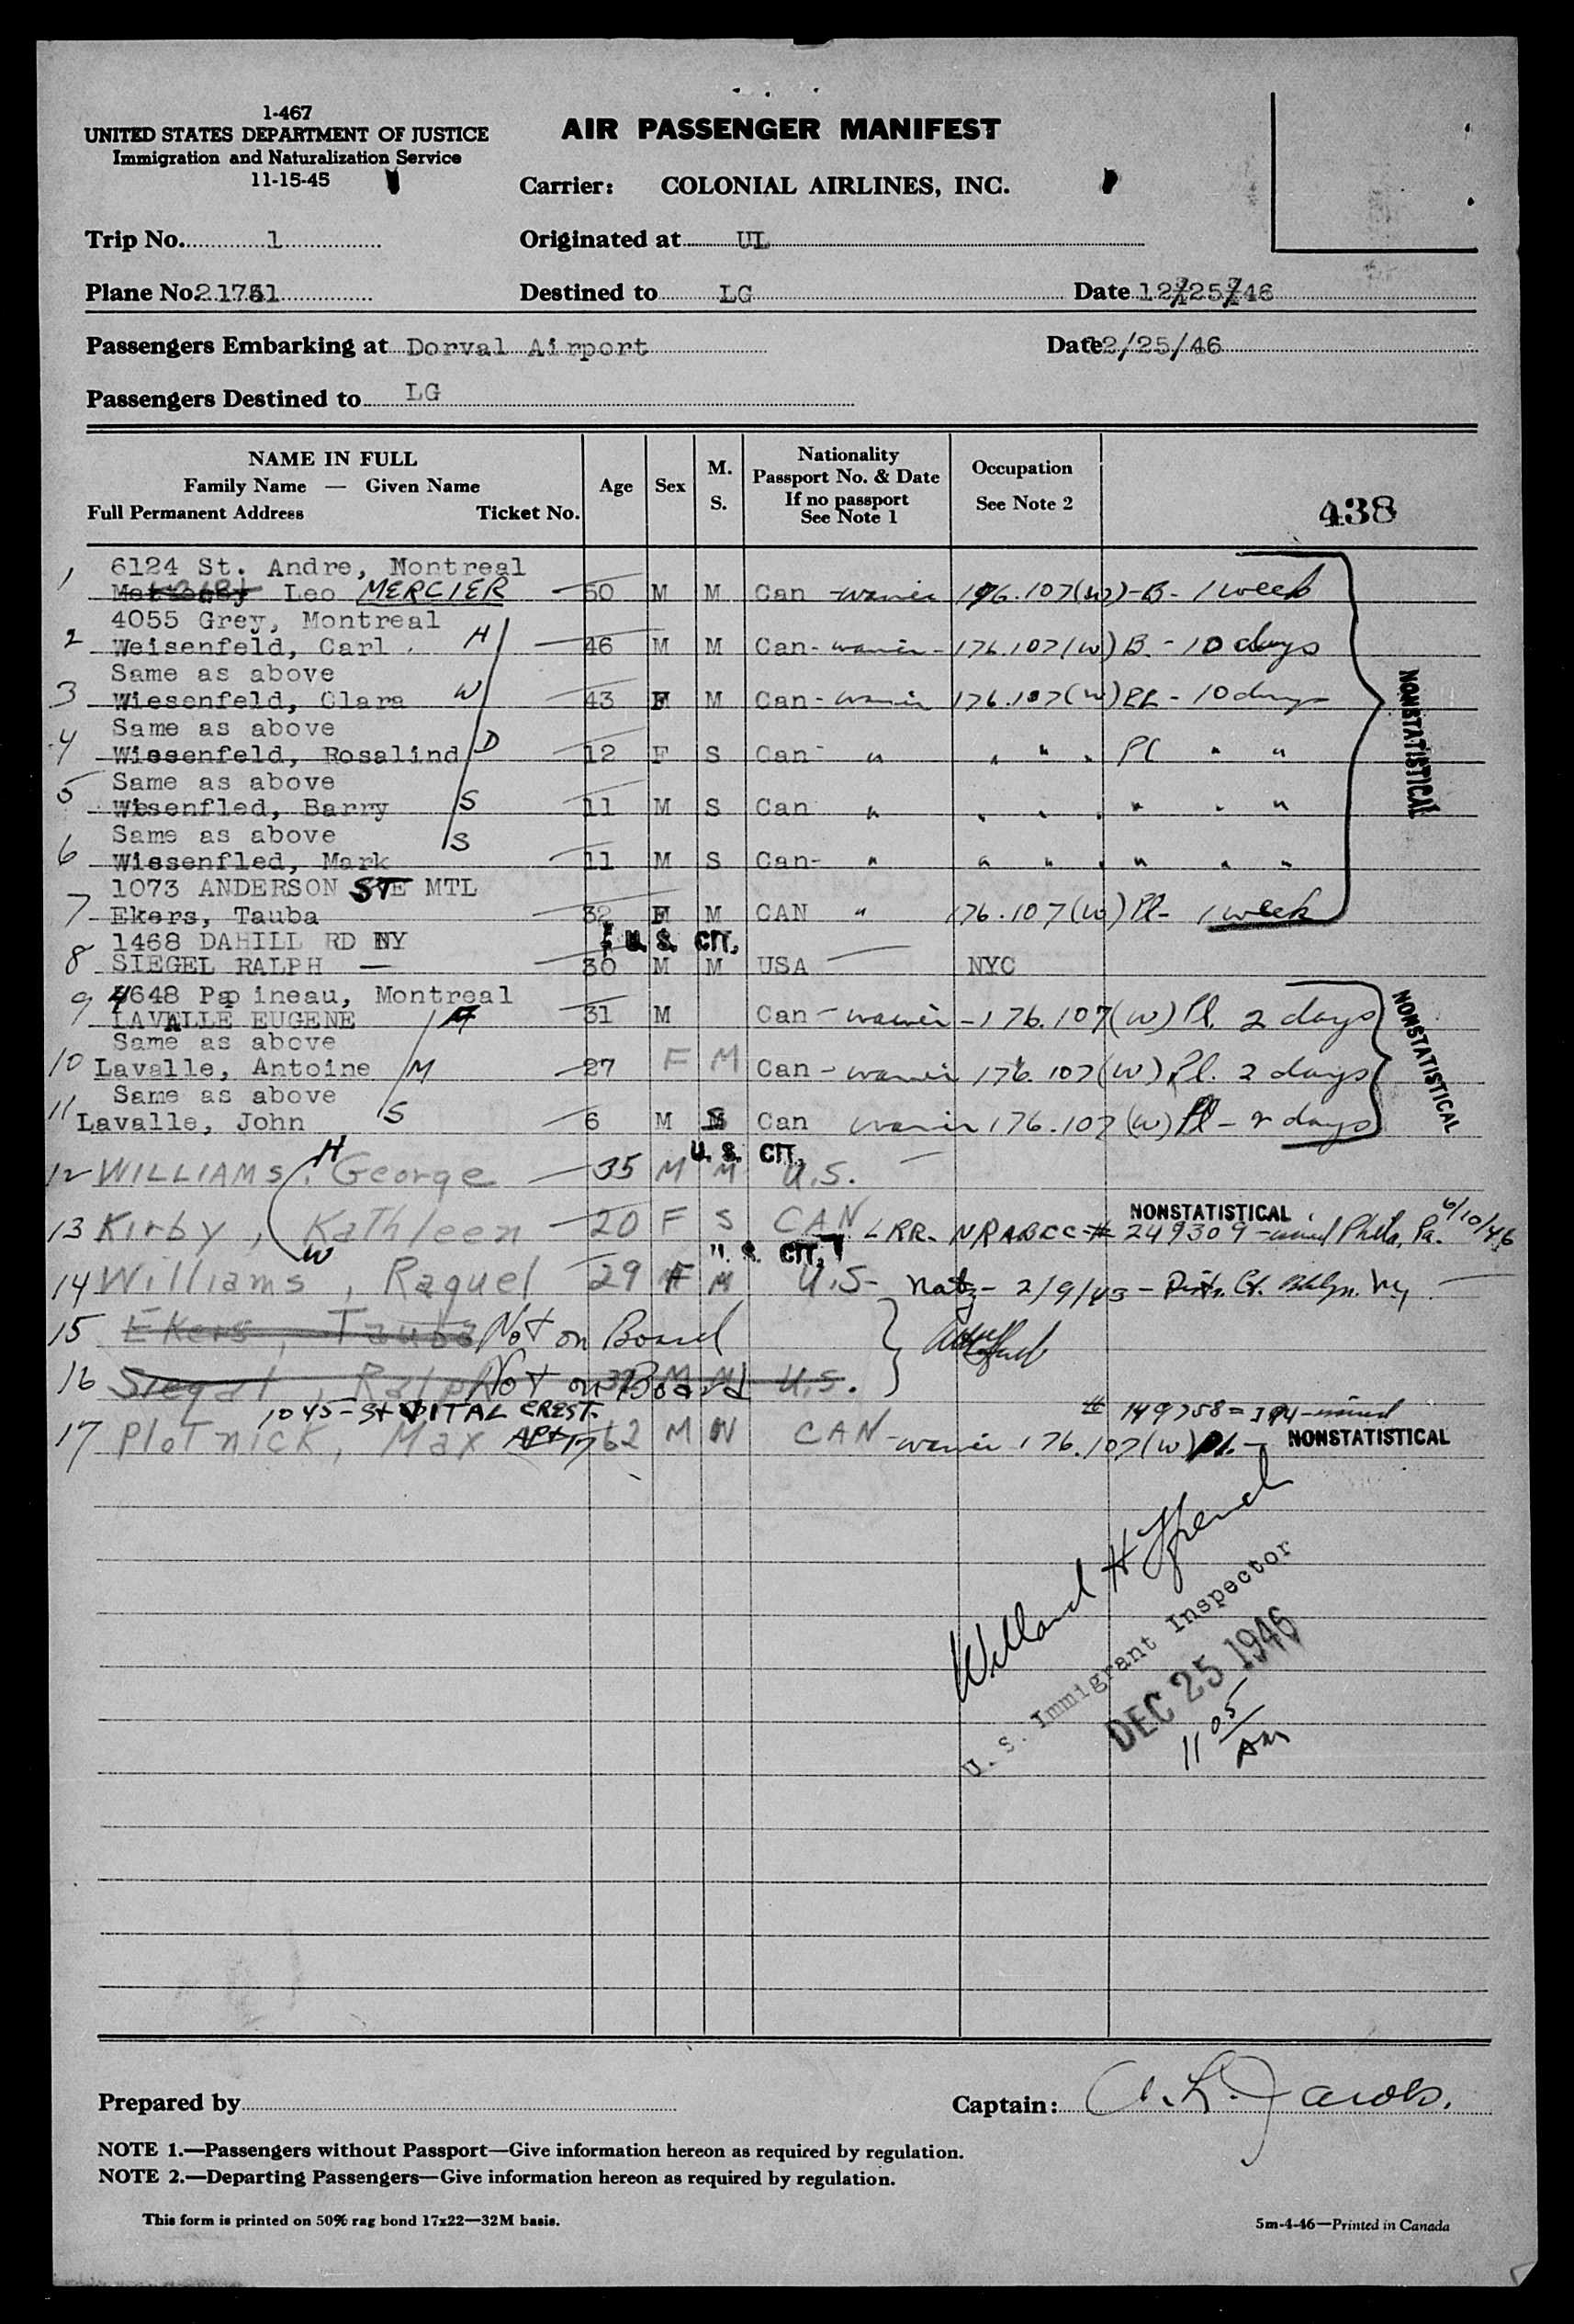 1-467
UNITED STATES DEPARTMENT OF JUSTICE
Immigration and Naturalization Service
11-15-45
AIR PASSENGER MANIFEST
Carrier: COLONIAL AIRLINES, INC.
Trip No. 1
Originated at UL
Plane No.
Destined to LG
Date 12/25/46
Passengers Embarking at Dorval Airport
Date 12/25/46
Passengers Destined to LG
NAME IN FULL
Family Name — Given Name
Full Permanent Address Ticket No.
Age
Sex
M. S.
Nationality
Passport No. & Date
If no passport
See Note 1
Occupation
See Note 2
438
6124 St. Andre, Montreal
1 Leo MERCIER 50 M M Can - waiver 176.107(W)-B- 1 week
4055 Grey, Montreal
2 Weisenfeld, Carl H 46 M M Can - waiver - 176.107(W) B - 10 days
Same as above
3 Wiesenfeld, Clara W 43 F M Can - waiver 176.107(W) Pl - 10 days
Same as above
4 Wiesenfeld, Rosalind D 12 F S Can - " " " Pl " "
Same as above
5 Wisenfled, Barry S 11 M S Can " " " " " "
Same as above
6 Wissenfled, Mark S 11 M S Can- " " " " " "
NONSTATISTICAL
1073 ANDERSON STE MTL
7 Ekers, Tauba 32 F M CAN " 176.107(W) Pl- 1 week
1468 DAHILL RD NY U. S. CIT.
8 SIEGEL RALPH — 30 M M USA — NYC
4648 Papineau, Montreal
9 LAVALLE EUGENE 31 M Can - waiver - 176.107(W) Pl. 2 days
Same as above
10 Lavalle, Antoine M 27 F M Can - waiver 176.107(W) Pl. 2 days
Same as above
11 Lavalle, John S 6 M S Can waiver 176.107(W) Pl - 2 days
NONSTATISTICAL
U. S. CIT.
12 WILLIAMS, George H 35 M M U.S. —
NONSTATISTICAL 6/10/46
13 Kirby, Kathleen 20 F S CAN LRR. NRABCC# 249309 - issued Phila, Pa.
W U. S. CIT.
14 Williams, Raquel 29 F M U.S- Natz- 2/9/43 - Distr. Ct. Bklyn. Ny —
15 Ekers, Tauba Not on Board
16 Siegal, Ralph Not on Board 32 M M U.S.
1045 - St VITAL CREST. # 149758 = I 94 - issued
17 Plotnick, Max Apt 17 62 M W CAN - waiver 176.107(W) Pl. - NONSTATISTICAL
Willard H French
U. S. Immigrant Inspector
DEC 25 1946
11 05 AM
Prepared by
Captain: A. L. Jacobs.
NOTE 1.—Passengers without Passport—Give information hereon as required by regulation.
NOTE 2.—Departing Passengers—Give information hereon as required by regulation.
This form is printed on 50% rag bond 17x22—32M basis.
5m-4-46—Printed in Canada